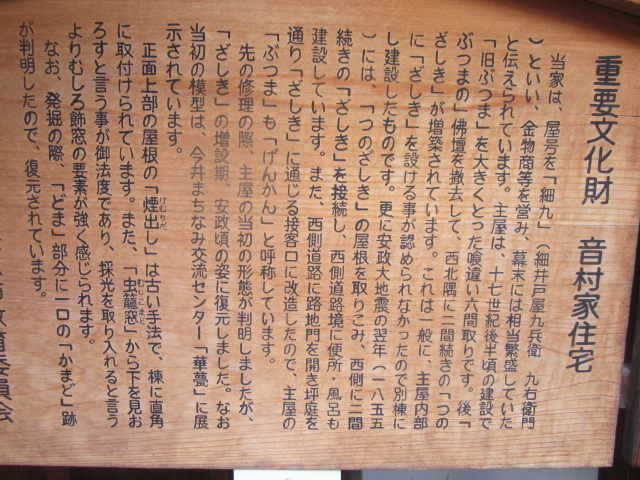 重要文化財　音村家住宅
当家は、屋号を「細九」（細井戸屋九兵衛　九右衛門
）といい、金物商等を営み、幕末には相当繁盛していた
と伝えられています。主屋は、十七世紀後半頃の建設で
「旧ぶつま」を大きくとった喰違い六間取りです。後「
ぶつまの」佛壇を撤去して、西北隅に二間続きの「つの
ざしき」が増築されています。これは一般に、主屋内部
に「ざしき」を設ける事が認められなかったので別棟に
し建設したものです。更に安政大地震の翌年（一八五五
）には、「つのざしき」の屋根を取りこみ、西側に二間
続きの「ざしき」を接続し、西側道路境に便所・風呂も
建設しています。また、西側道路に路地門を開き坪庭を
通り「ざしき」に通じる接客口に改造したので、主屋の
「ぶつま」も「げんかん」と呼称しています。
先の修理の際、主屋の当初の形態が判明しましたが、
「ざしき」の増設期、安政頃の姿に復元しました。なお
当初の模型は、今井まちなみ交流センター「華甍」に展
示されています。
正面上部の屋根の「煙出し」は古い手法で、棟に直角
けむりだ
に取付けられています。また、「虫籠窓」から下を見お
むしこまど
ろすと言う事が御法度であり、採光を取り入れると言う
よりむしろ飾窓の要素が強く感じられます。
なお、発掘の際、「どま」部分に一口の「かまど」跡
が判明したので、復元されています。
市教育委員会